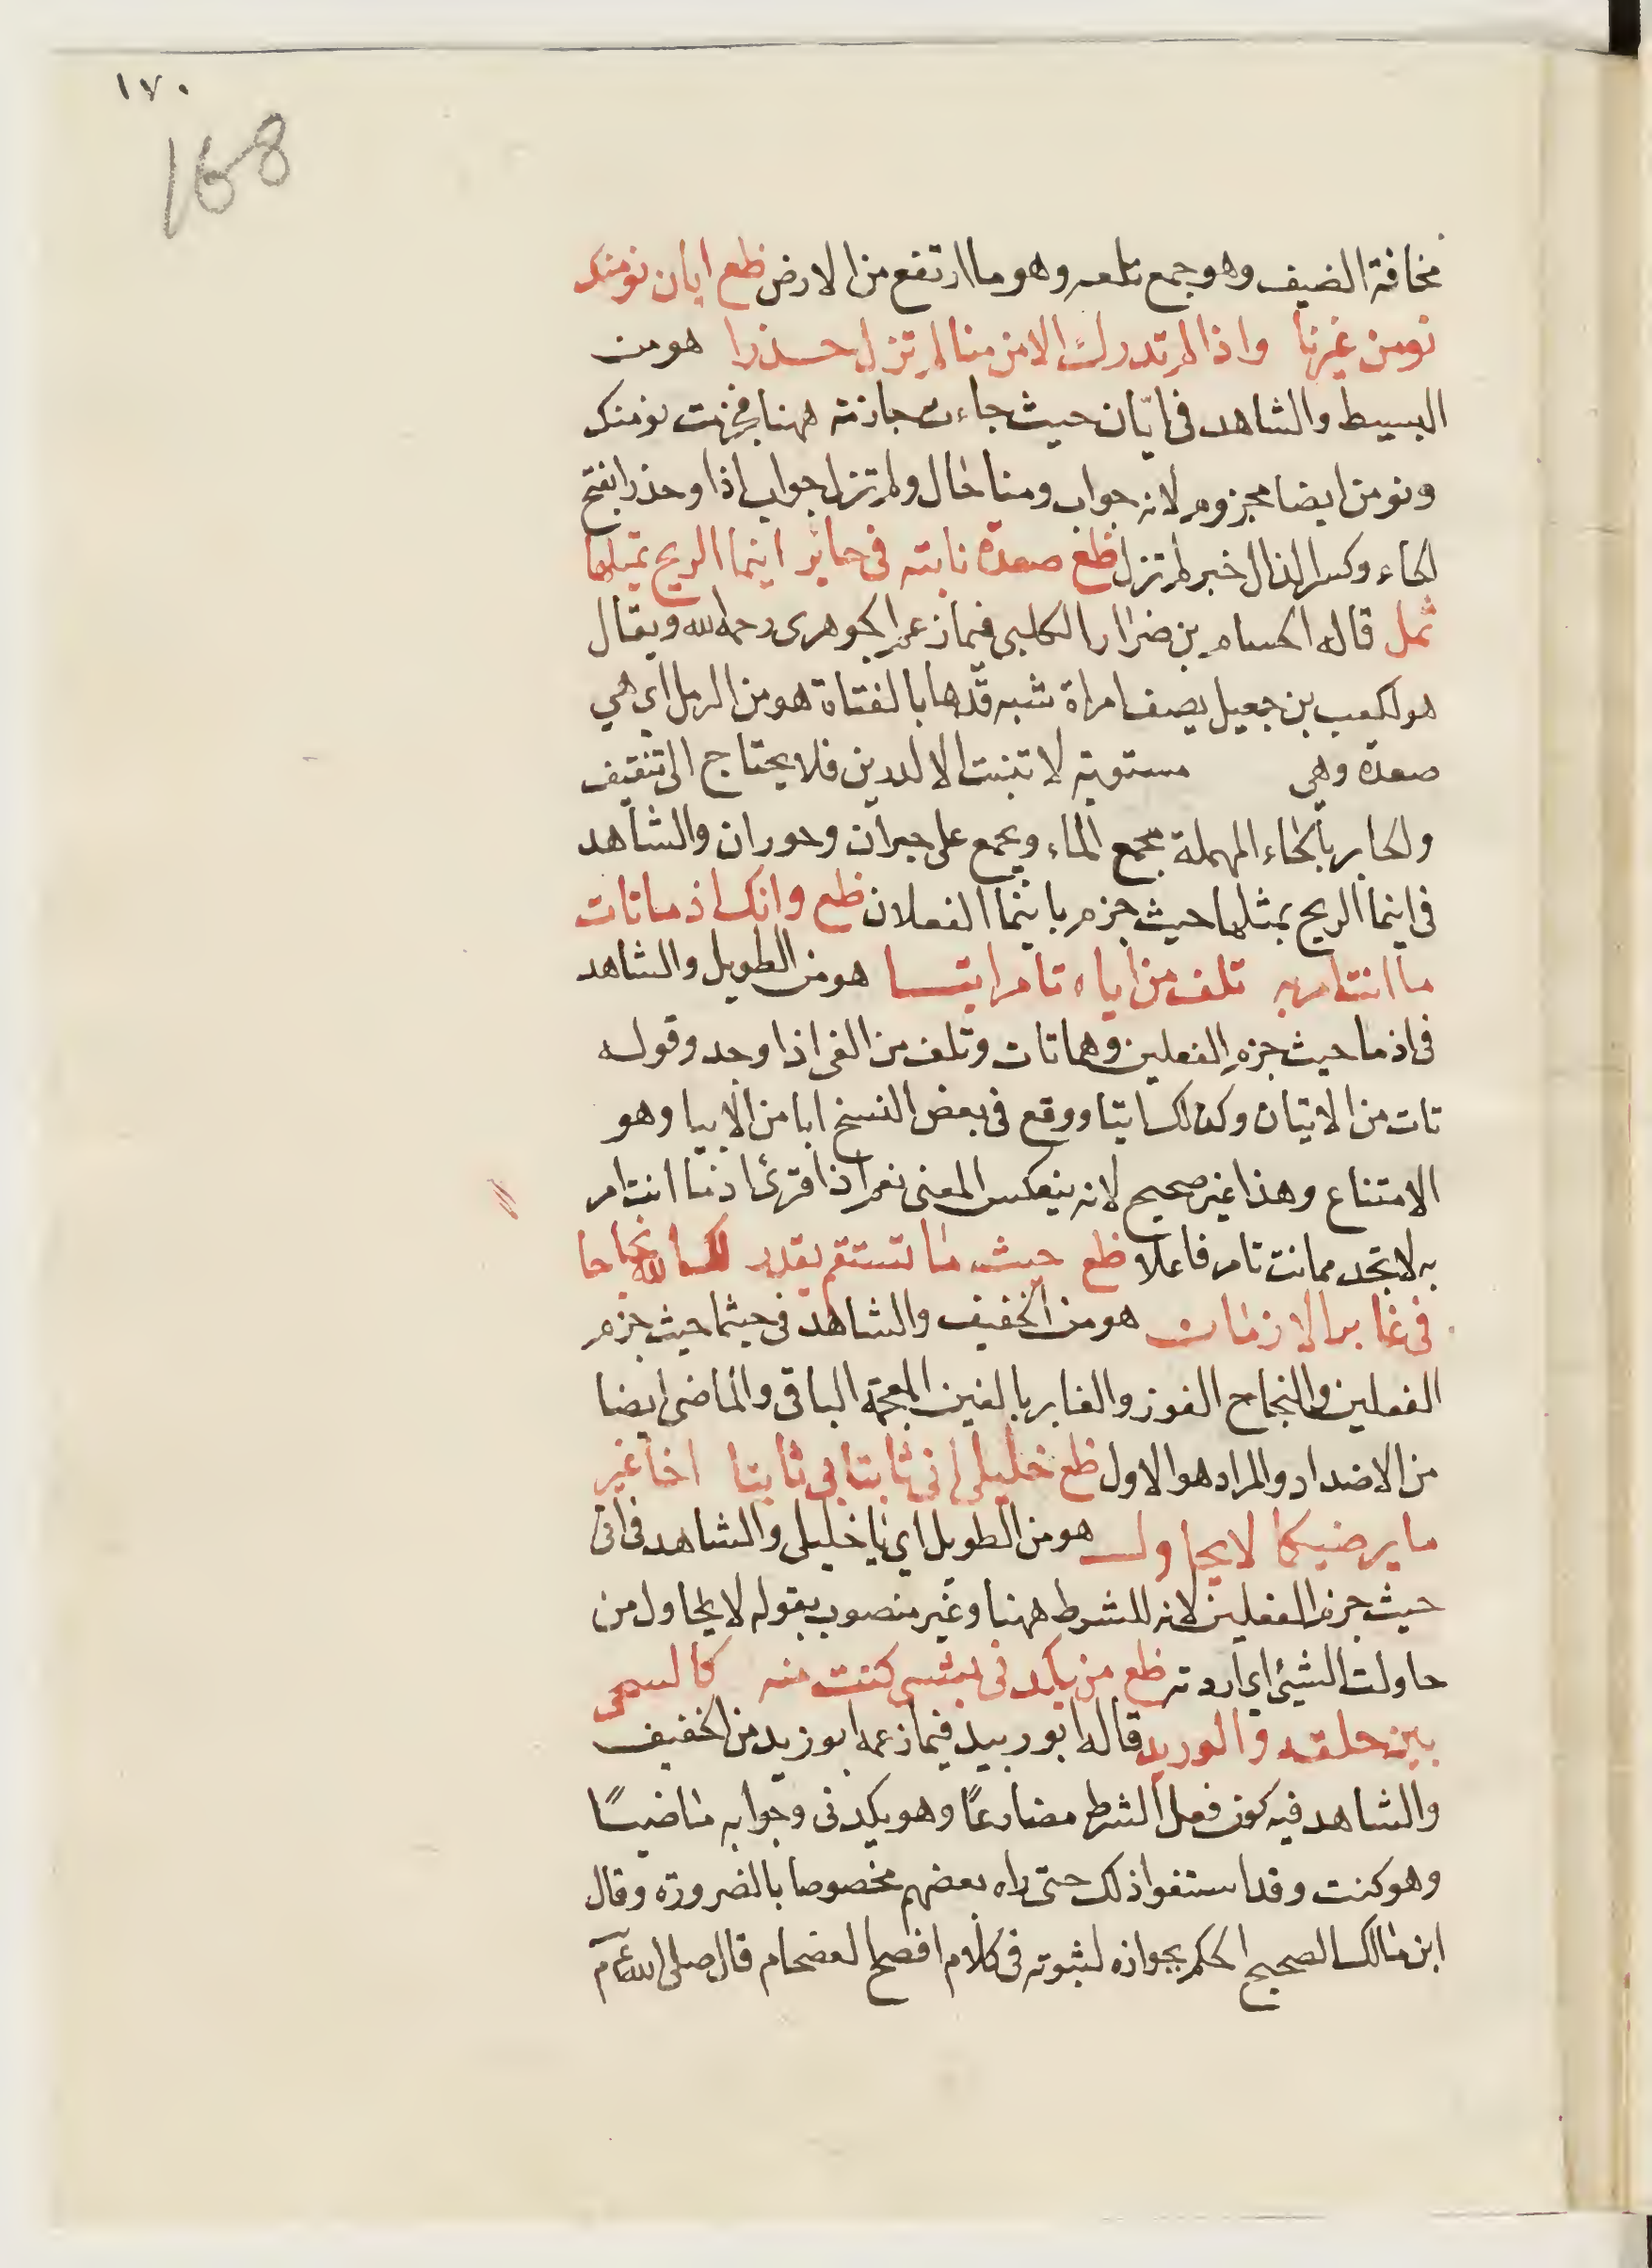 ١٧٠
168
مخافة الضيف وهو جمع تلعه وهو ما ارتفع من الارض ظع ايان نومنك
نومن غيرنا واذا لم تدرك الامن منا لم تزل حذرا هو من
البسيط والشاهد فى ايّان حيث جاءت جازمة ههنا فجزمت نومنك
ونومن ايضا مجزوم لانه جواب ومنا حال ولم تزل جواب اذا وحذرا بفتح
الحاء وكسر الذال خبر لم تزل ظع صعدة نابته فى حائر اينما الريح تميلها
تمل قاله الحسام بن ضرار الكلبى فيما زعم الجوهرى رحمه الله ويقال
هو لكعب بن جعيل يصف امراة شبه قدّها بالقناة هو من الرمل اى هى
صعدة وهى مستوية لا تنبت الا لدين فلا يحتاج الى تثقيف
والحاير بالحاء المهملة مجمع الماء ويجمع على حيران وحوران والشاهد
فى اينما الريح تميلها حيث جزم باينما الفعلان ظع وانك اذ ما تات
ما انت امر به تلف من اياه تامر ايتا هو من الطويل والشاهد
فى اذ ما حيث جزم الفعلين وهما تات وتلف من الفى اذا وجد وقوله
تات من الاتيان وكذلك ايتا ووقع فى بعض النسخ ابا من الابيا وهو
الامتناع وهذا غير صحيح لانه ينعكس المعنى نعم اذا قرئ اذ ما انت امر
به لا تجد مما نت تامر فاعلا ظع حيث ما تستقم يقدر لك الله نجاحا
فى غابر الازمان هو من الخفيف والشاهد فى حيثما حيث جزم
الفعلين والنجاح الفوز والغابر بالغين المعجمة الباقى والماضى ايضا
من الاضداد والمراد هو الاول ظع خليلى انى تاتيانى تاتيا اخا غير
ما يرضيكما لا يحاول هو من الطويل اى يا خليلى والشاهد فى انى
حيث جزم الفعلين لانه للشرط ههنا وغير منصوب بقوله لا يحاول من
حاولت الشيئ اى اردته ظع من يكدنى بشىء كنت منه كالسجى
بين حلقه والوريد قاله ابو زبيد فيما زعمه ابو زيد من الخفيف
والشاهد فيه كون فعل الشرط مضارعًا وهو يكدنى وجوابه ماضيًا
وهو كنت وقد استضعفوا ذلك حتى راه بعضهم مخصوصا بالضرورة وقال
ابن مالك الصحيح الحكم بجوازه لثبوته فى كلام افصح الفصحاء قال صلى الله